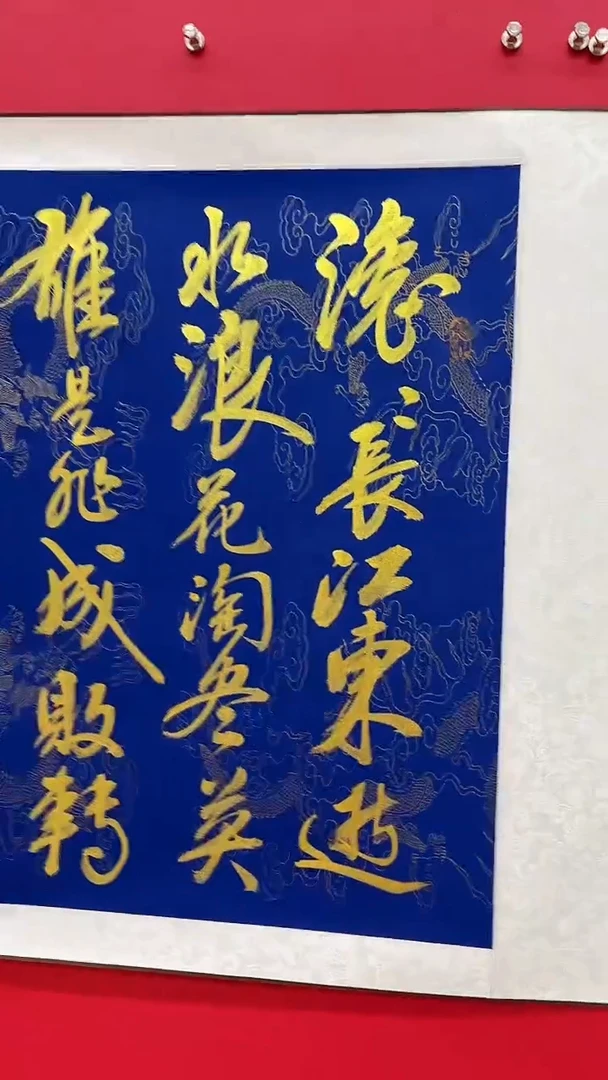 滚〻長江東逝
水浪花淘尽英
雄是非成敗轉